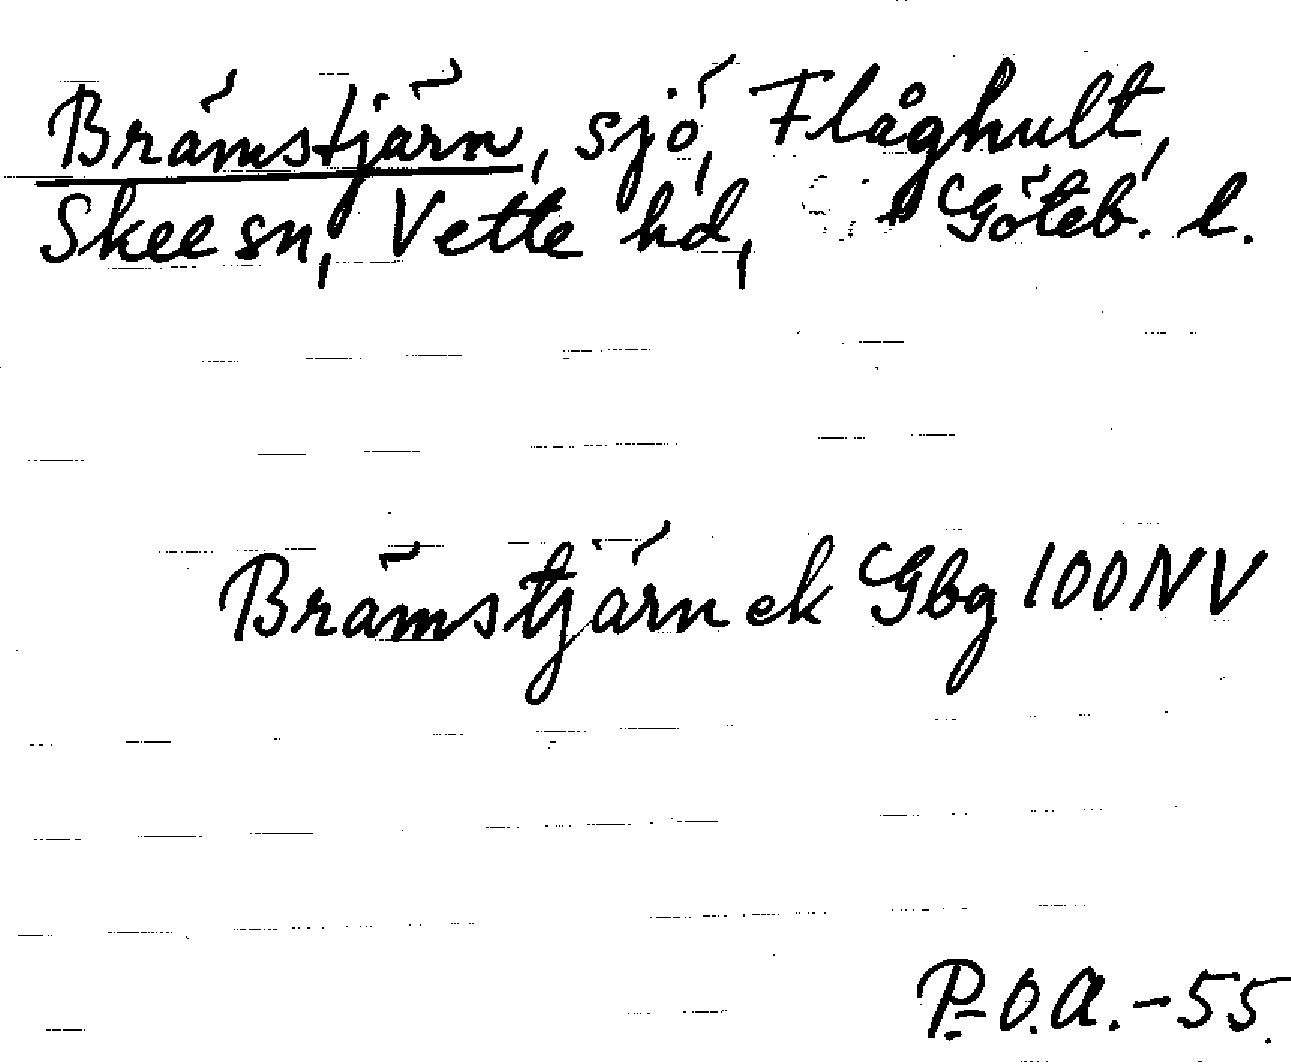 Brämstjärn, sjö, Flåghult,
Skee sn, Vette hd, Göteb. l.
Brämstjärn ek Gbg 100 NV
P.O.A.-55.